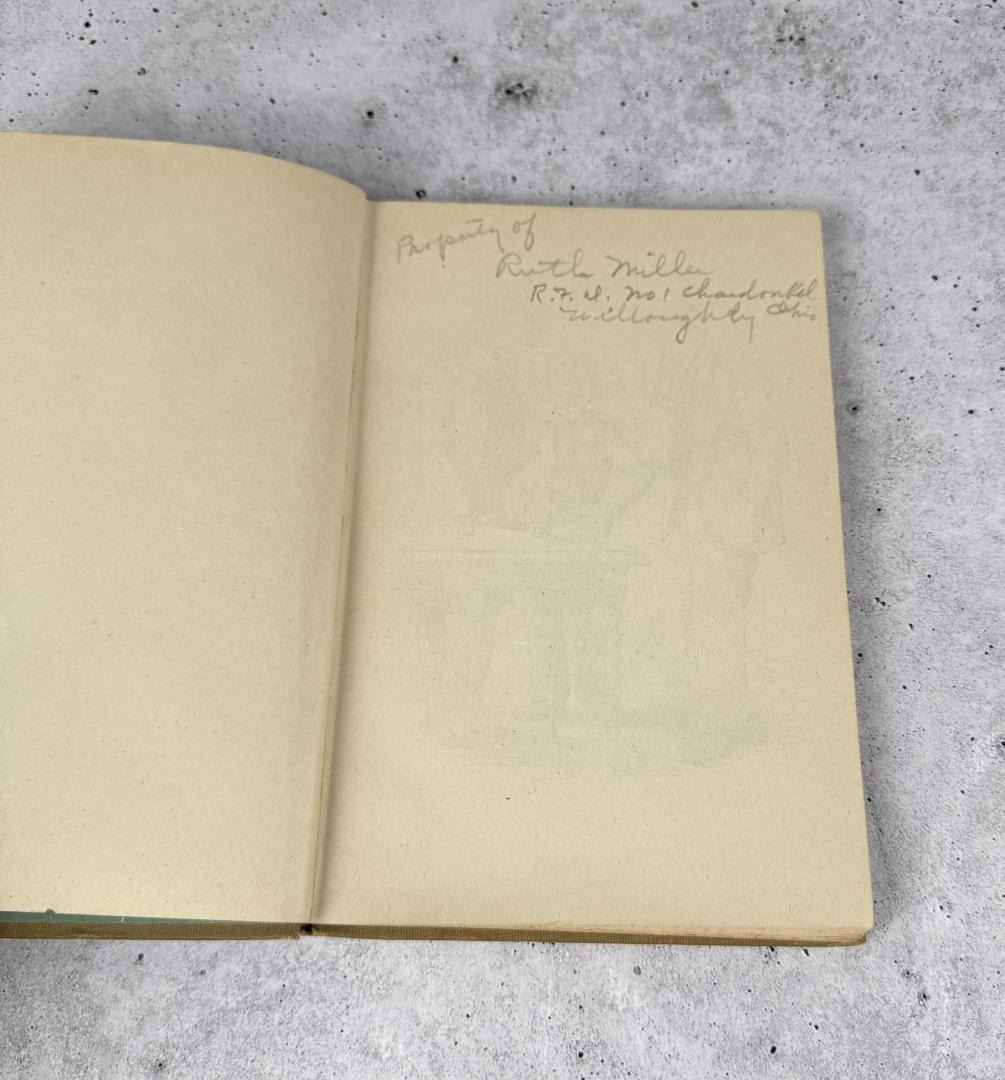 Property of
Ruth Miller
R.F.D. No 1 Chardon Rd
Willoughby Ohio